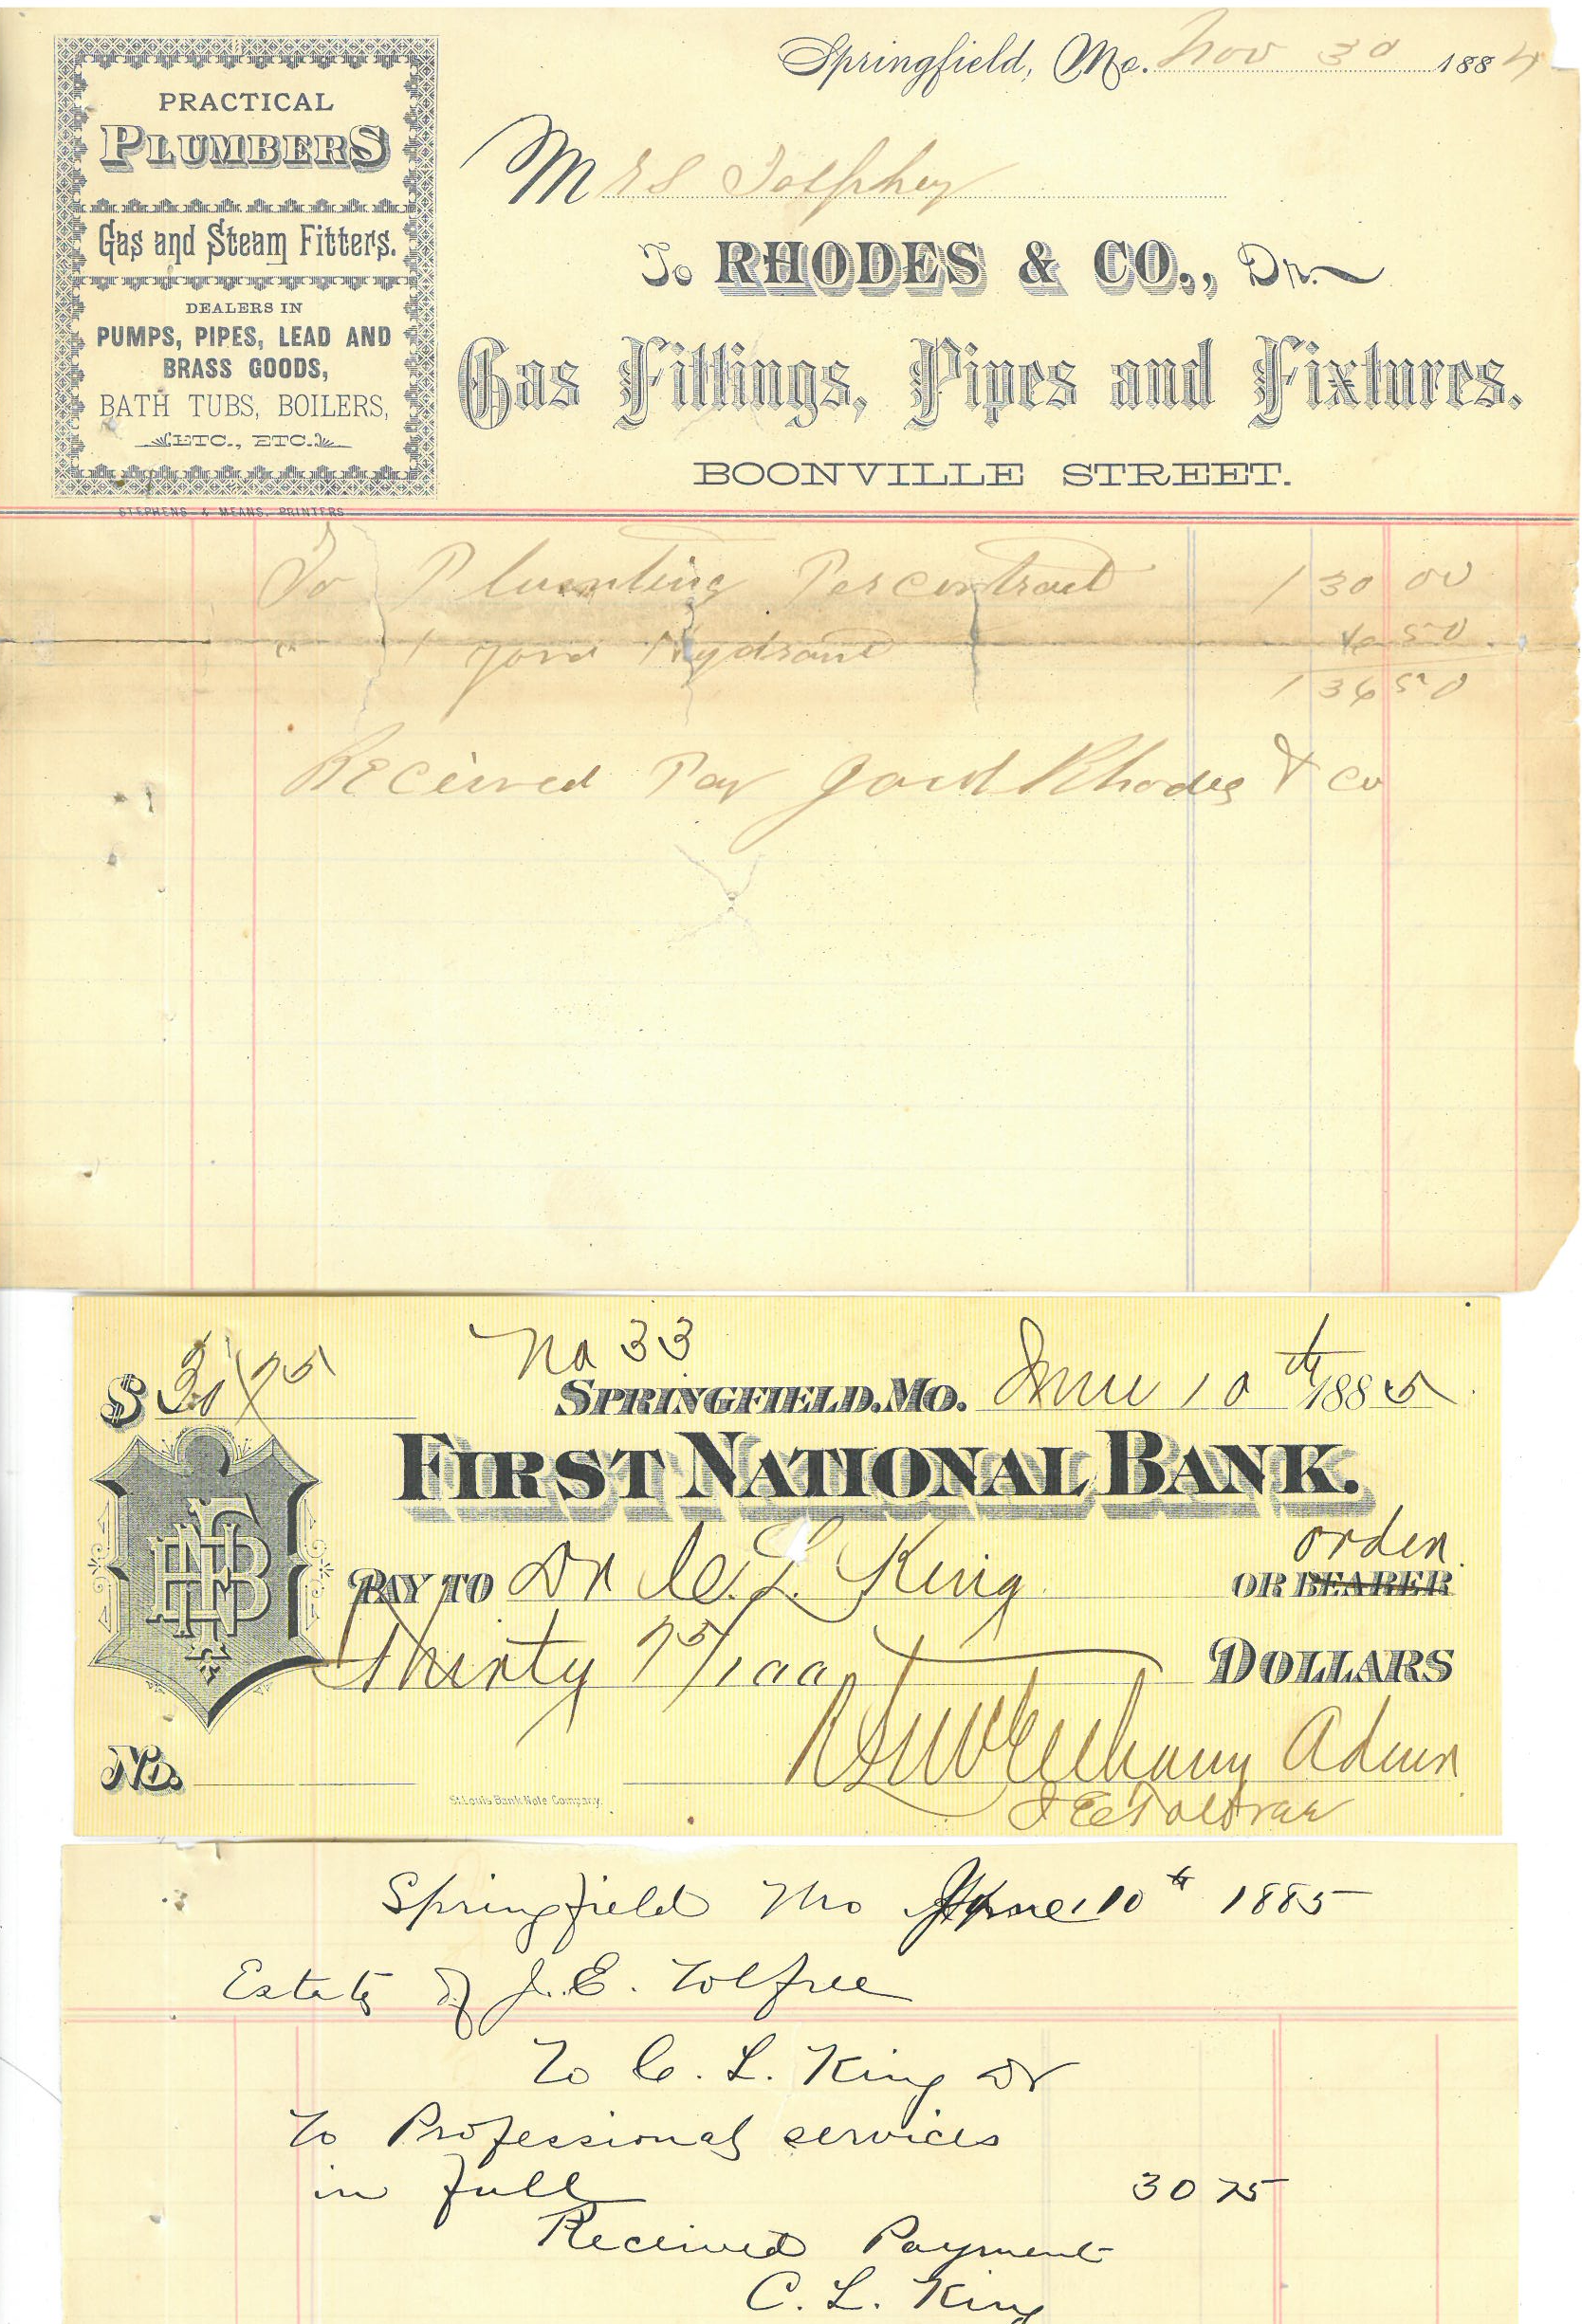 PRACTICAL
PLUMBERS
Gas and Steam Fitters.
DEALERS IN
PUMPS, PIPES, LEAD AND
BRASS GOODS,
BATH TUBS, BOILERS,
ETC., ETC.
STEPHENS & MEANS, PRINTERS
Springfield, Mo. Nov 30 1884
Mrs
To RHODES & CO., Dr.
Gas Fittings, Pipes and Fixtures.
BOONVILLE STREET.
To Plumbing Per contract 130 00
" 1 yard Hydrant 6 50
136 50
Received Pay Rhodes & Co
No 33
$ 30/75 SPRINGFIELD, MO. June 10th 1885
FIRST NATIONAL BANK.
order
PAY TO Dr C. L. King OR BEARER
Thirty 75/100 DOLLARS
Admr
No.
St. Louis Bank Note Company.
Springfield Mo June 10th 1885
Estate of J. E. Tolfree
To C. L. King Dr
To Professional services
in full 30 75
Received Payment
C. L. King